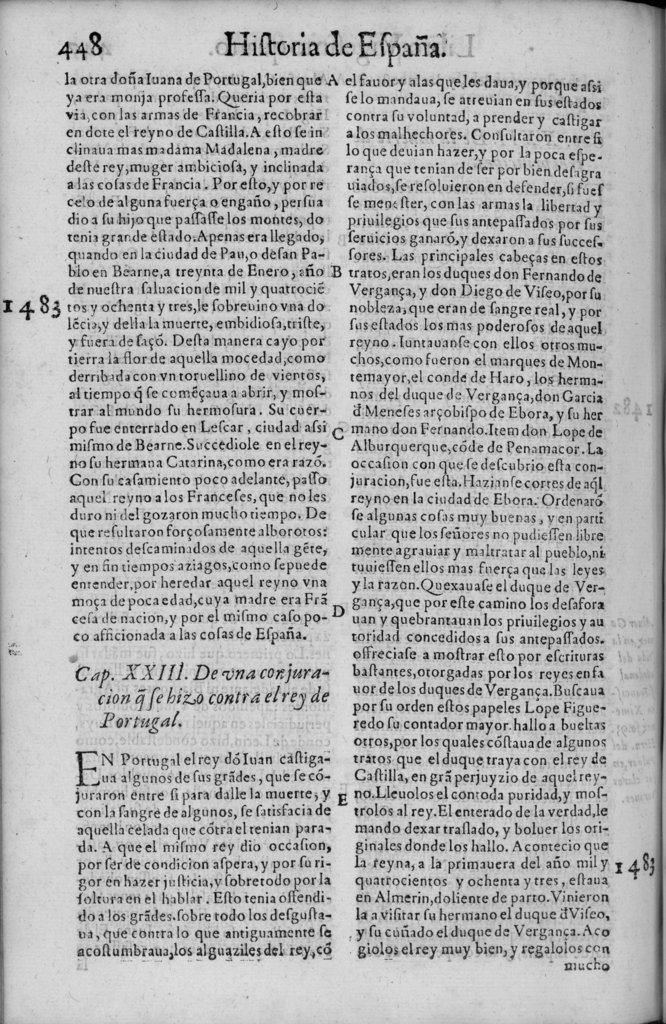 448 Historia de España.
la otra doña Iuana de Portugal, bien que
ya era monja professa. Queria por esta
via, con las armas de Francia, recobrar
en dote el reyno de Castilla. A esto se in
clinaua mas madama Madalena, madre
deste rey, muger ambiciosa, y inclinada
a las cosas de Francia. Por esto, y por re
celo de alguna fuerça o engaño, persua
dio a su hijo que passasse los montes, do
tenia grande estado. Apenas era llegado,
quando en la ciudad de Pau, o desan Pa-
blo en Bearne, a treynta de Enero, año
de nuestra saluacion de mil y quatrociẽ
1483 tos y ochenta y tres, le sobreuino vna do
lẽcia, y della la muerte, embidiosa, triste,
y fuera de saçõ. Desta manera cayo por
tierra la flor de aquella mocedad, como
derribada con vn toruellino de vientos,
al tiempo q̃ se comẽçaua a abrir, y mos-
trar al mundo su hermosura. Su cuer-
po fue enterrado en Lescar, ciudad assi
mismo de Bearne. Succediole en el rey-
no su hermana Catarina, como era razõ.
Con su casamiento poco adelante, passo
aquel reyno a los Franceses, que no les
duro ni del gozaron mucho tiempo. De
que resultaron forçosamente alborotos:
intentos descaminados de aquella gẽte,
y en fin tiempos aziagos, como sepuede
entender, por heredar aquel reyno vna
moça de poca edad, cuya madre era Frã
cesa de nacion, y por el mismo caso po-
co afficionada a las cosas de España.
Cap. XXIII. De vna conjura-
cion q̃ se hizo contra el rey de
Portugal.
EN Portugal el rey dõ Iuan castiga-
ua algunos de sus grãdes, que se cõ-
juraron entre si para dalle la muerte, y
con la sangre de algunos, se satisfacia de
aquella celada que cõtra el tenian para-
da. A que el mismo rey dio occasion,
por ser de condicion aspera, y por su ri-
gor en hazer justicia, y sobretodo por la
soltura en el hablar. Esto tenia offendi-
do a los grãdes. sobre todo los desgusta-
ua, que contra lo que antiguamente se
acostumbraua, los alguaziles del rey, cõ
A
B
C
D
E
el fauor y alas que les daua, y porque assi
se lo mandaua, se atreuian en sus estados
contra su voluntad, a prender y castigar
a los malhechores. Consultaron entre si
lo que deuian hazer, y por la poca espe-
rança que tenian de ser por bien desagra
uiados, se resoluieron en defender, si fues
se menester, con las armas la libertad y
priuilegios que sus antepassados por sus
seruicios ganarõ, y dexaron a sus succes-
sores. Las principales cabeças en estos
tratos, eran los duques don Fernando de
Vergança, y don Diego de Viseo, por su
nobleza, que eran de sangre real, y por
sus estados los mas poderosos de aquel
reyno. Iuntauanse con ellos otros mu-
chos, como fueron el marques de Mon-
temayor, el conde de Haro, los herma-
nos del duque de Vergança, don Garcia
đ Meneses arçobispo de Ebora, y su her
mano don Fernando. Item don Lope de
Alburquerque, cõde de Penamacor. La
occasion con que se descubrio esta con-
juracion, fue esta. Hazianse cortes de aq̃l
reyno en la ciudad de Ebora. Ordenarõ
se algunas cosas muy buenas, y en parti
cular que los señores no pudiessen libre
mente agrauiar y maltratar al pueblo, ni
tuuiessen ellos mas fuerça que las leyes
y la razon. Quexauase el duque de Ver-
gança, que por este camino los desafora
uan y quebrantauan los priuilegios y au
toridad concedidos a sus antepassados.
offreciase a mostrar esto por escrituras
bastantes, otorgadas por los reyes en fa
uor de los duques de Vergança. Buscaua
por su orden estos papeles Lope Figue-
redo su contador mayor. hallo a bueltas
otros, por los quales cõstaua de algunos
tratos que el duque traya con el rey de
Castilla, en grã perjuyzio de aquel rey-
no. Lleuolos el contoda puridad, y mos-
trolos al rey. El enterado de la verdad, le
mando dexar traslado, y boluer los ori-
ginales donde los hallo. Acontecio que
la reyna, a la primauera del año mil y 1483
quatrocientos y ochenta y tres, estaua
en Almerin, doliente de parto. Vinieron
la a visitar su hermano el duque đ Viseo,
y su cuñado el duque de Vergança. Aco
giolos el rey muy bien, y regalolos con
mucho